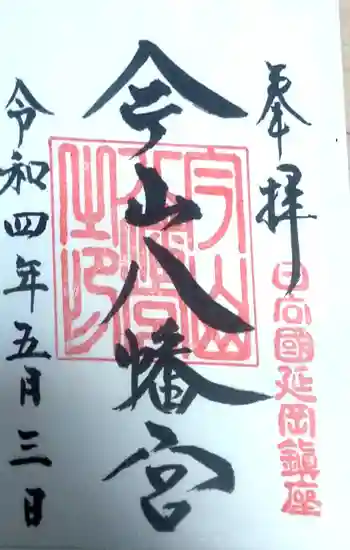 奉拝
日向國延岡鎮座
今山八幡宮
今山八幡宮之印
令和四年五月三日